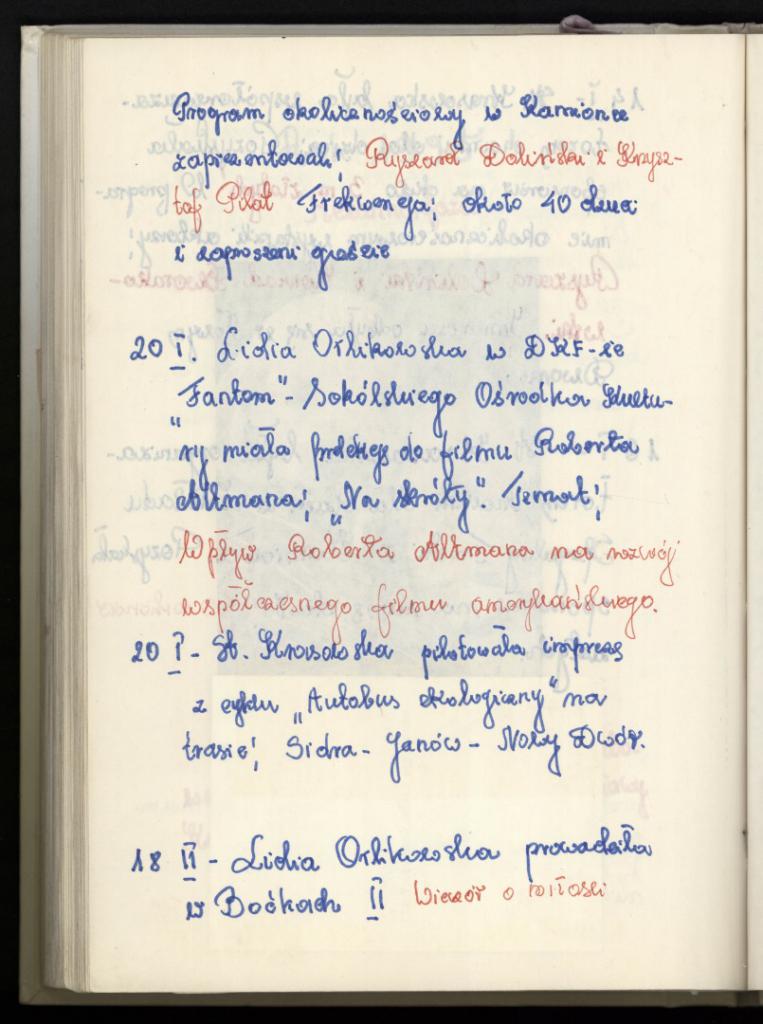 Program okolicznościowy w Kamionce
zaprezentowali: Ryszard Doliński i Krzysz-
tof Pilat Frekwencja: około 40 dzieci
i zaproszeni goście
20 I. Lidia Orlikowska w DKF-ie
"Fantom" - Sokólskiego Ośrodka Kultu-
ry miała prelekcję do filmu Roberta
Altmana: "Na skróty". Temat:
Wpływ Roberta Altmana na rozwój
współczesnego filmu amerykańskiego.
20 I - St. Krasowska pilotowała imprezę
z cyklu "Autobus ekologiczny" na
trasie: Sidra - Janów - Nowy Dwór.
18 II - Lidia Orlikowska prowadziła
w Boćkach II Wieczór o miłości